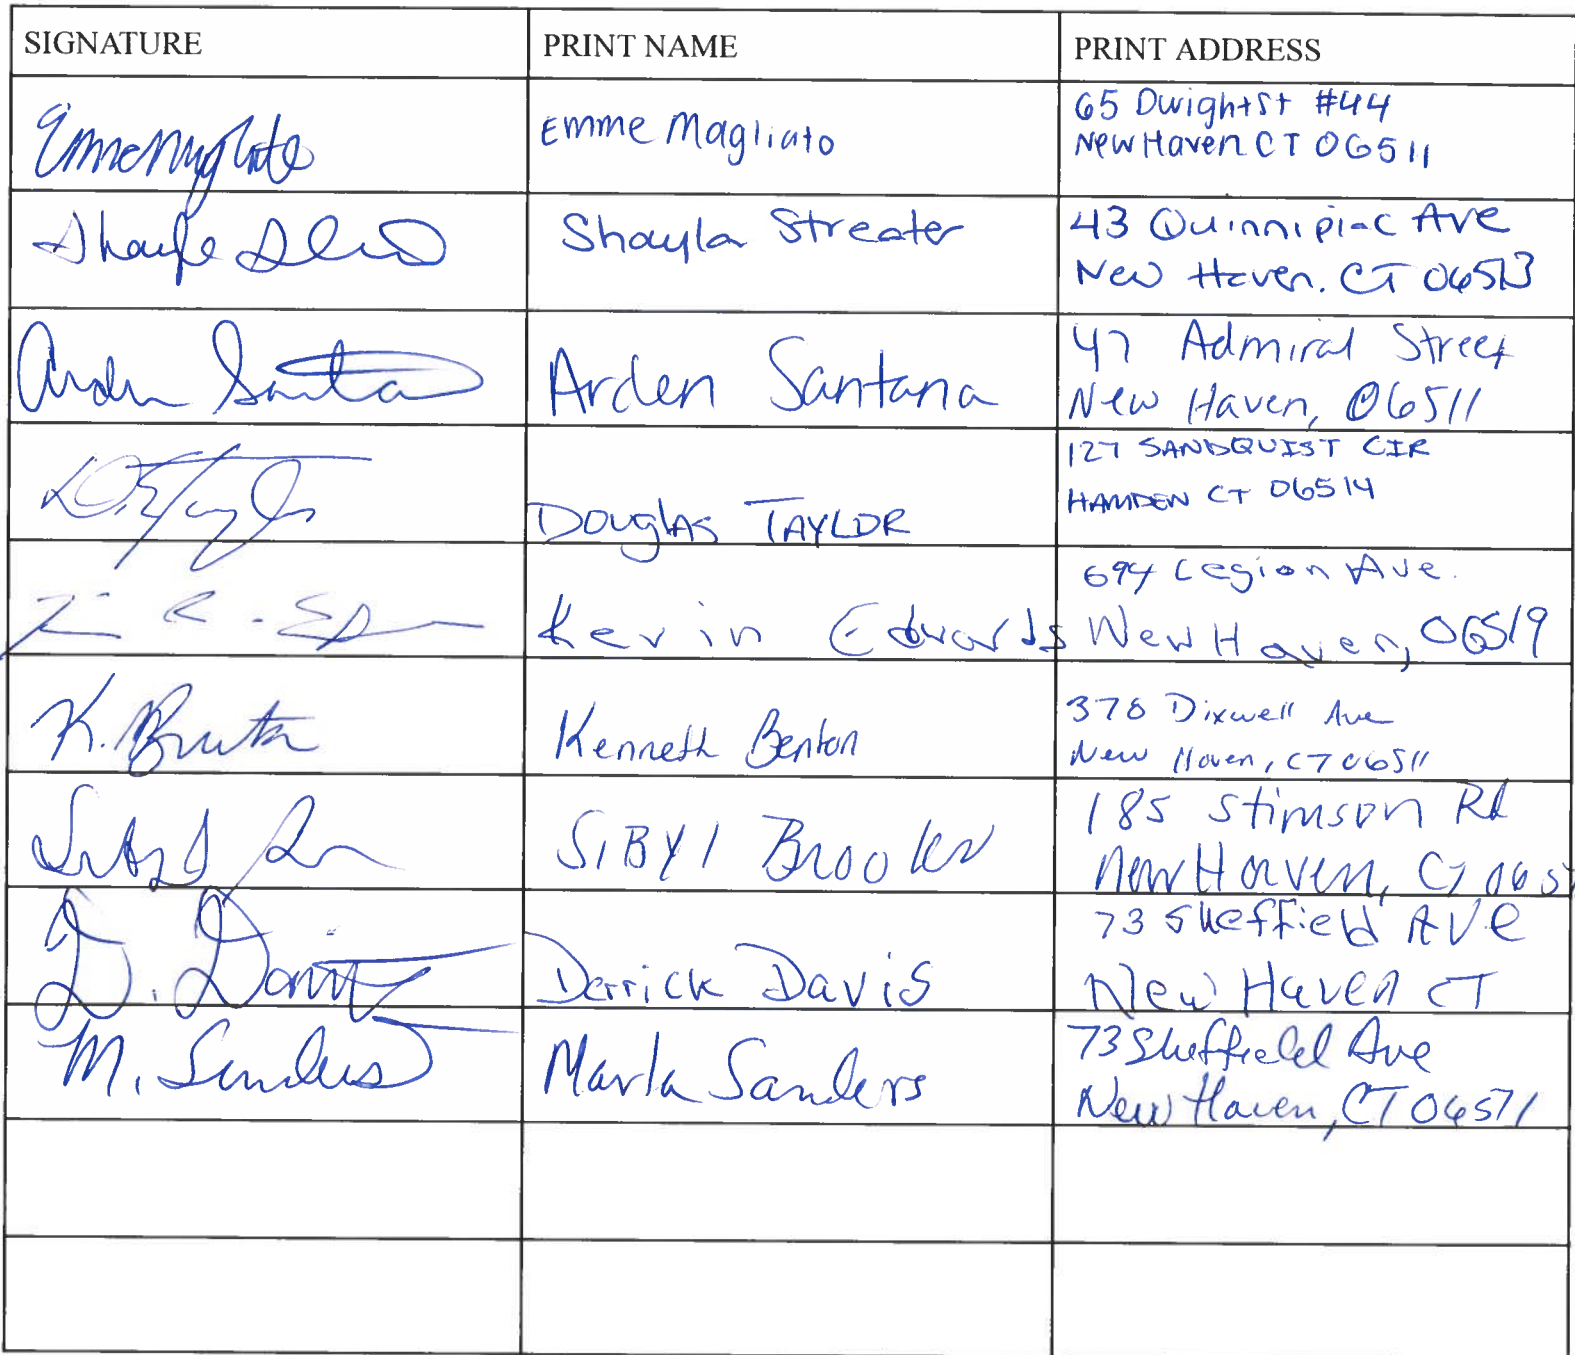 SIGNATURE PRINT NAME PRINT ADDRESS
Emme Magliato 65 Dwight St #44
New Haven CT 06511
Shayla Streater 43 Quinnipiac Ave
New Haven. CT 06513
Arden Santana 47 Admiral Street
New Haven, 06511
Douglas TAYLOR 127 SANDQUIST CIR
HAMDEN CT 06514
Kevin Edwards 694 Legion Ave.
New Haven, 06519
K. Kenneth Benton 378 Dixwell Ave
New Haven, CT 06511
SIBYl Brooks 185 Stimson Rd
New Haven, CT 0651
D. Davis Derrick Davis 73 Sheffield AVE
New Haven CT
M. Sanders Marla Sanders 73 Sheffield Ave
New Haven, CT 06571